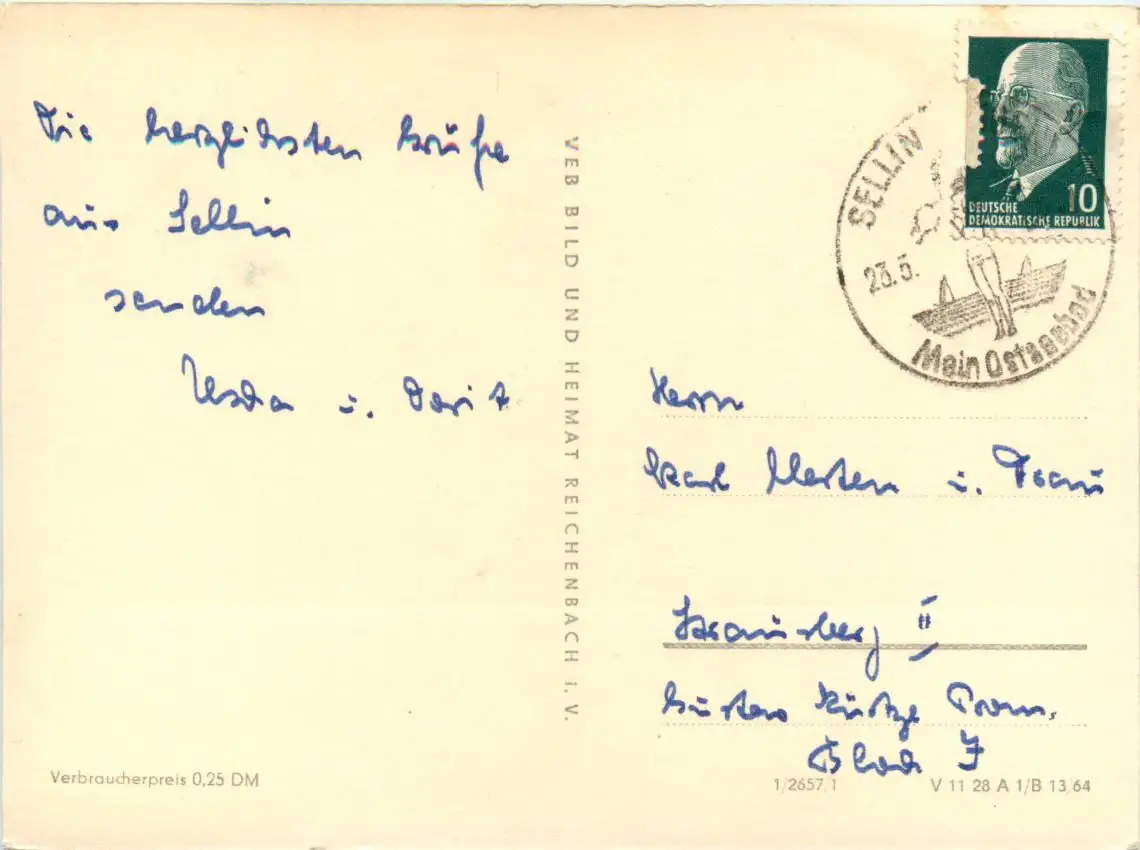 Die herzlichsten Grüße
aus Sellin
senden
u. Dorit
VEB BILD UND HEIMAT REICHENBACH i. V.
Verbraucherpreis 0,25 DM
SELLIN
23.5.
Mein Ostseebad
10
DEUTSCHE
DEMOKRATISCHE REPUBLIK
Herrn
Karl Merten u. Frau
Strausberg II
Gustav Kurtze Prom.
Block I
1/2657/1
V 11 28 A 1/B 13/64